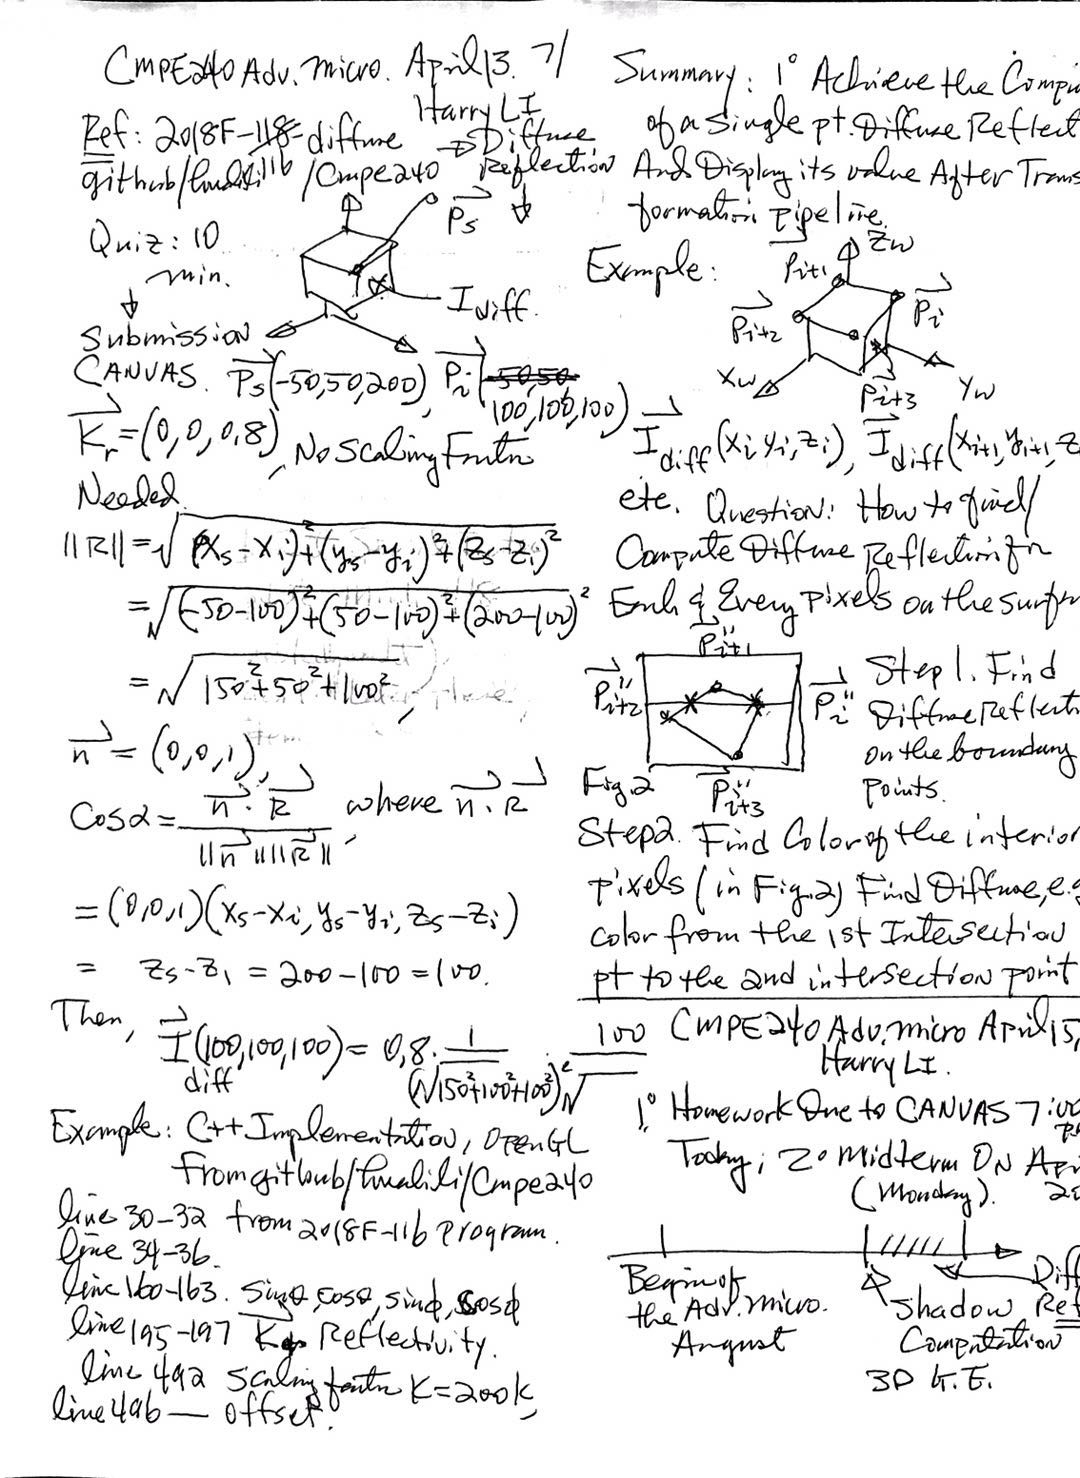 CMPE240 Adv. Micro. April 13. 7/
Harry LI
Ref: 2018F-118-diffuse → Diffuse
Reflection
github/hualili116/Cmpe240
Quiz: 10
min.
Submission
CANVAS.
Ps
Idiff.
Ps(-50,50,200), Pi(50,50
100,100,100)
Kr=(0,0,0.8), No Scaling Factor
Needed.
||R||=√(xs-xi)²+(ys-yi)²+(zs-zi)²
=√(-50-100)²+(50-100)²+(200-100)²
=√150²+50²+100²,
n=(0,0,1),
Cosα= n·R / ||n|| ||R||, where n·R
=(0,0,1)(xs-xi, ys-yi, zs-zi)
= zs-z1=200-100=100.
Then,
Idiff(100,100,100)=0,8·1/(√150²+100²+100²)²·100/√
Example: C++ Implementation, OpenGL
From github/hualili/Cmpe240
line 30-32 from 2018F-116 Program.
line 34-36.
line 160-163. sinθ, cosθ, sinφ, cosφ
line 195-197 K Reflectivity.
line 492 scaling factor K=200K,
line 496 — offset.
Summary: 1° Achieve the Compu
of a Single pt. Diffuse Reflect
And Display its value After Trans
formation pipeline.
Example:
Zw
Pi+1
Pi
Pi+2
Xw
Pi+3
Yw
Idiff(xi yi, zi), Idiff(xi+1, yi+1, z
etc. Question: How to find/
Compute Diffuse Reflection for
Each & Every pixels on the surf
P"i+1
P"i+2
P"i
P"i+3
Fig.2
Step 1. Find
Diffuse Reflect
on the boundary
Points.
Step 2. Find Color of the interior
pixels (in Fig.2) Find Diffuse, e.g
color from the 1st Intersection
pt to the 2nd intersection point
CMPE240 Adv. Micro April 15,
Harry LI.
1° Homework Due to CANVAS 7:00
Today; 2° Midterm ON Apr
(Monday).
Begin of
the Adv. Micro.
August
Shadow
Computation
3D G.E.
Diff
Ref